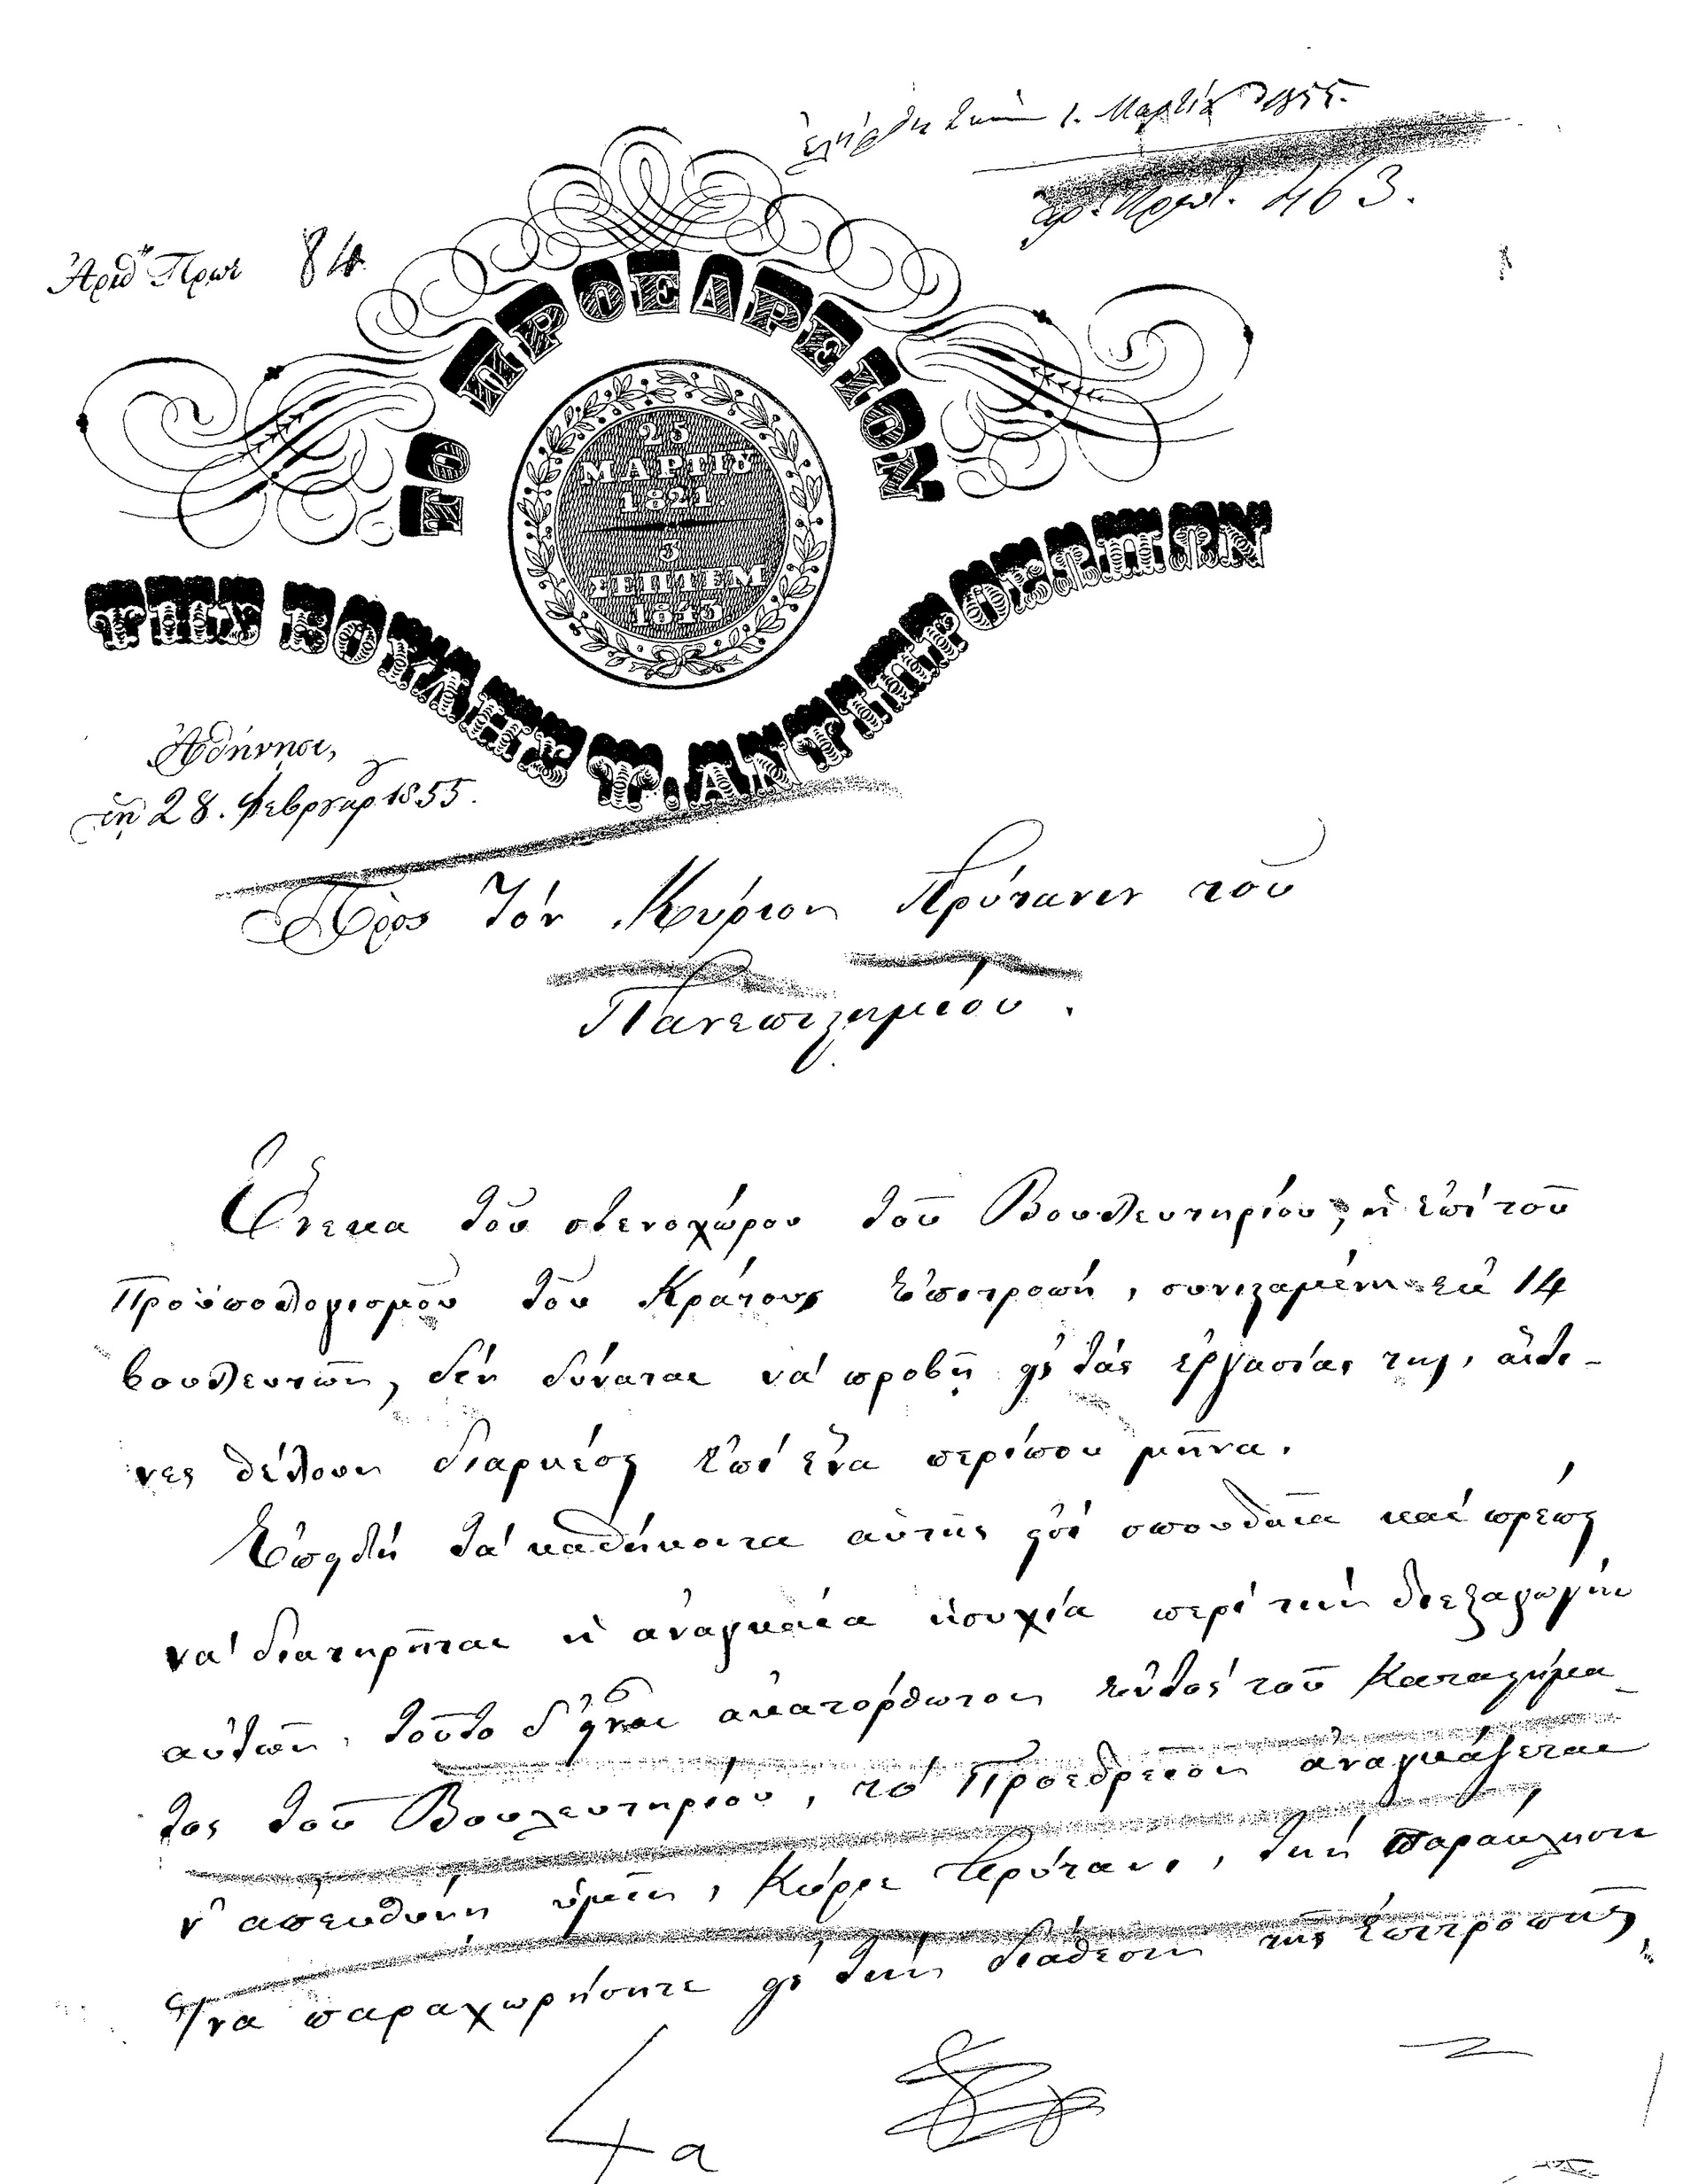 ἐλήφθη τὴν 1. Μαρτίȣ 1855.
ἀρ. Πρωτ. 463.
Ἀριθ. Πρωτ 84
ΤΟ ΠΡΟΕΔΡΕΙΟΝ
25
ΜΑΡΤΙȢ
1821
3
ΣΕΠΤΕΜ
1843
ΤΗΣ ΒΟΥΛΗΣ Τ. ΑΝΤΙΠΡΟΣΩΠΩΝ
Ἀθήνησι,
τῇ 28. Φεβρȣαρ 1855.
Πρὸς Τὸν Κύριον Πρύτανιν τοῦ
Πανεπιϛημίου.
Ἕνεκα τοῦ στενοχώρου τοῦ Βουλευτηρίου, ἡ ἐπὶ τοῦ
Προϋπολογισμοῦ τοῦ Κράτους Ἐπιτροπή, συνιϛαμένη ἐκ 14
βουλευτῶν, δὲν δύναται νὰ προβῇ εἰς τὰς ἐργασίας της, αἵτι-
νες θέλουν διαρκέσει ἐπὶ ἕνα περίπου μῆνα.
Ἐπειδὴ τὰ καθήκοντα αὐτῆς εἰσὶ σπουδαῖα καὶ πρέπει
νὰ διατηρῆται ἡ ἀναγκαία ἡσυχία περὶ τὴν διεξαγωγὴν
αὐτῶν, τοῦτο δ' εἶναι ἀκατόρθωτον ἐντὸς τοῦ Καταϛήμα-
τος τοῦ Βουλευτηρίου, τὸ Προεδρεῖον ἀναγκάζεται
ν' ἀπευθύνῃ ὑμῖν, Κύριε Πρύτανι, τὴν παράκλησιν
ἵνα παραχωρήσητε εἰς τὴν διάθεσιν τῆς Ἐπιτροπῆς,
4α